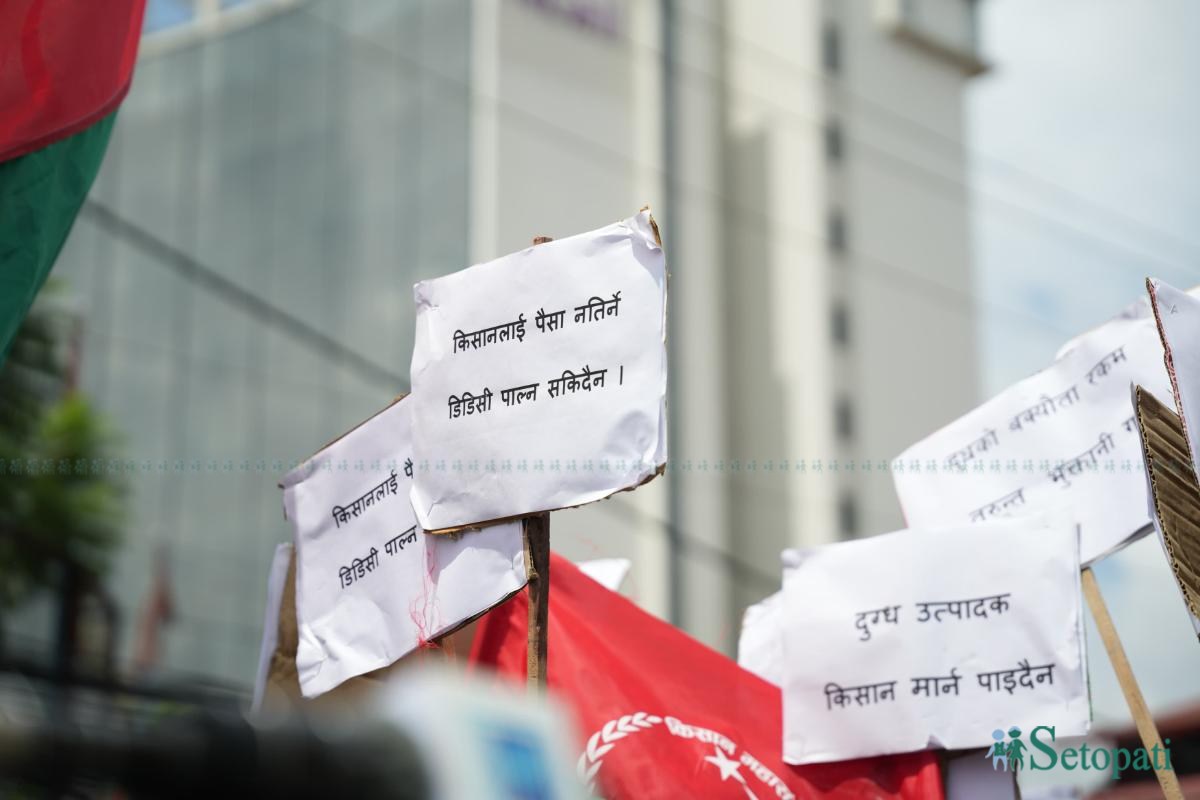 किसानलाई पैसा नतिर्ने
डिडिसी पाल्न सकिदैन ।
किसानलाई
डिडिसी पाल्न
दुधको बक्यौता रकम
तुरुन्त भुक्तानी
दुग्ध उत्पादक
किसान मार्न पाइदैन
किसान
Setopati